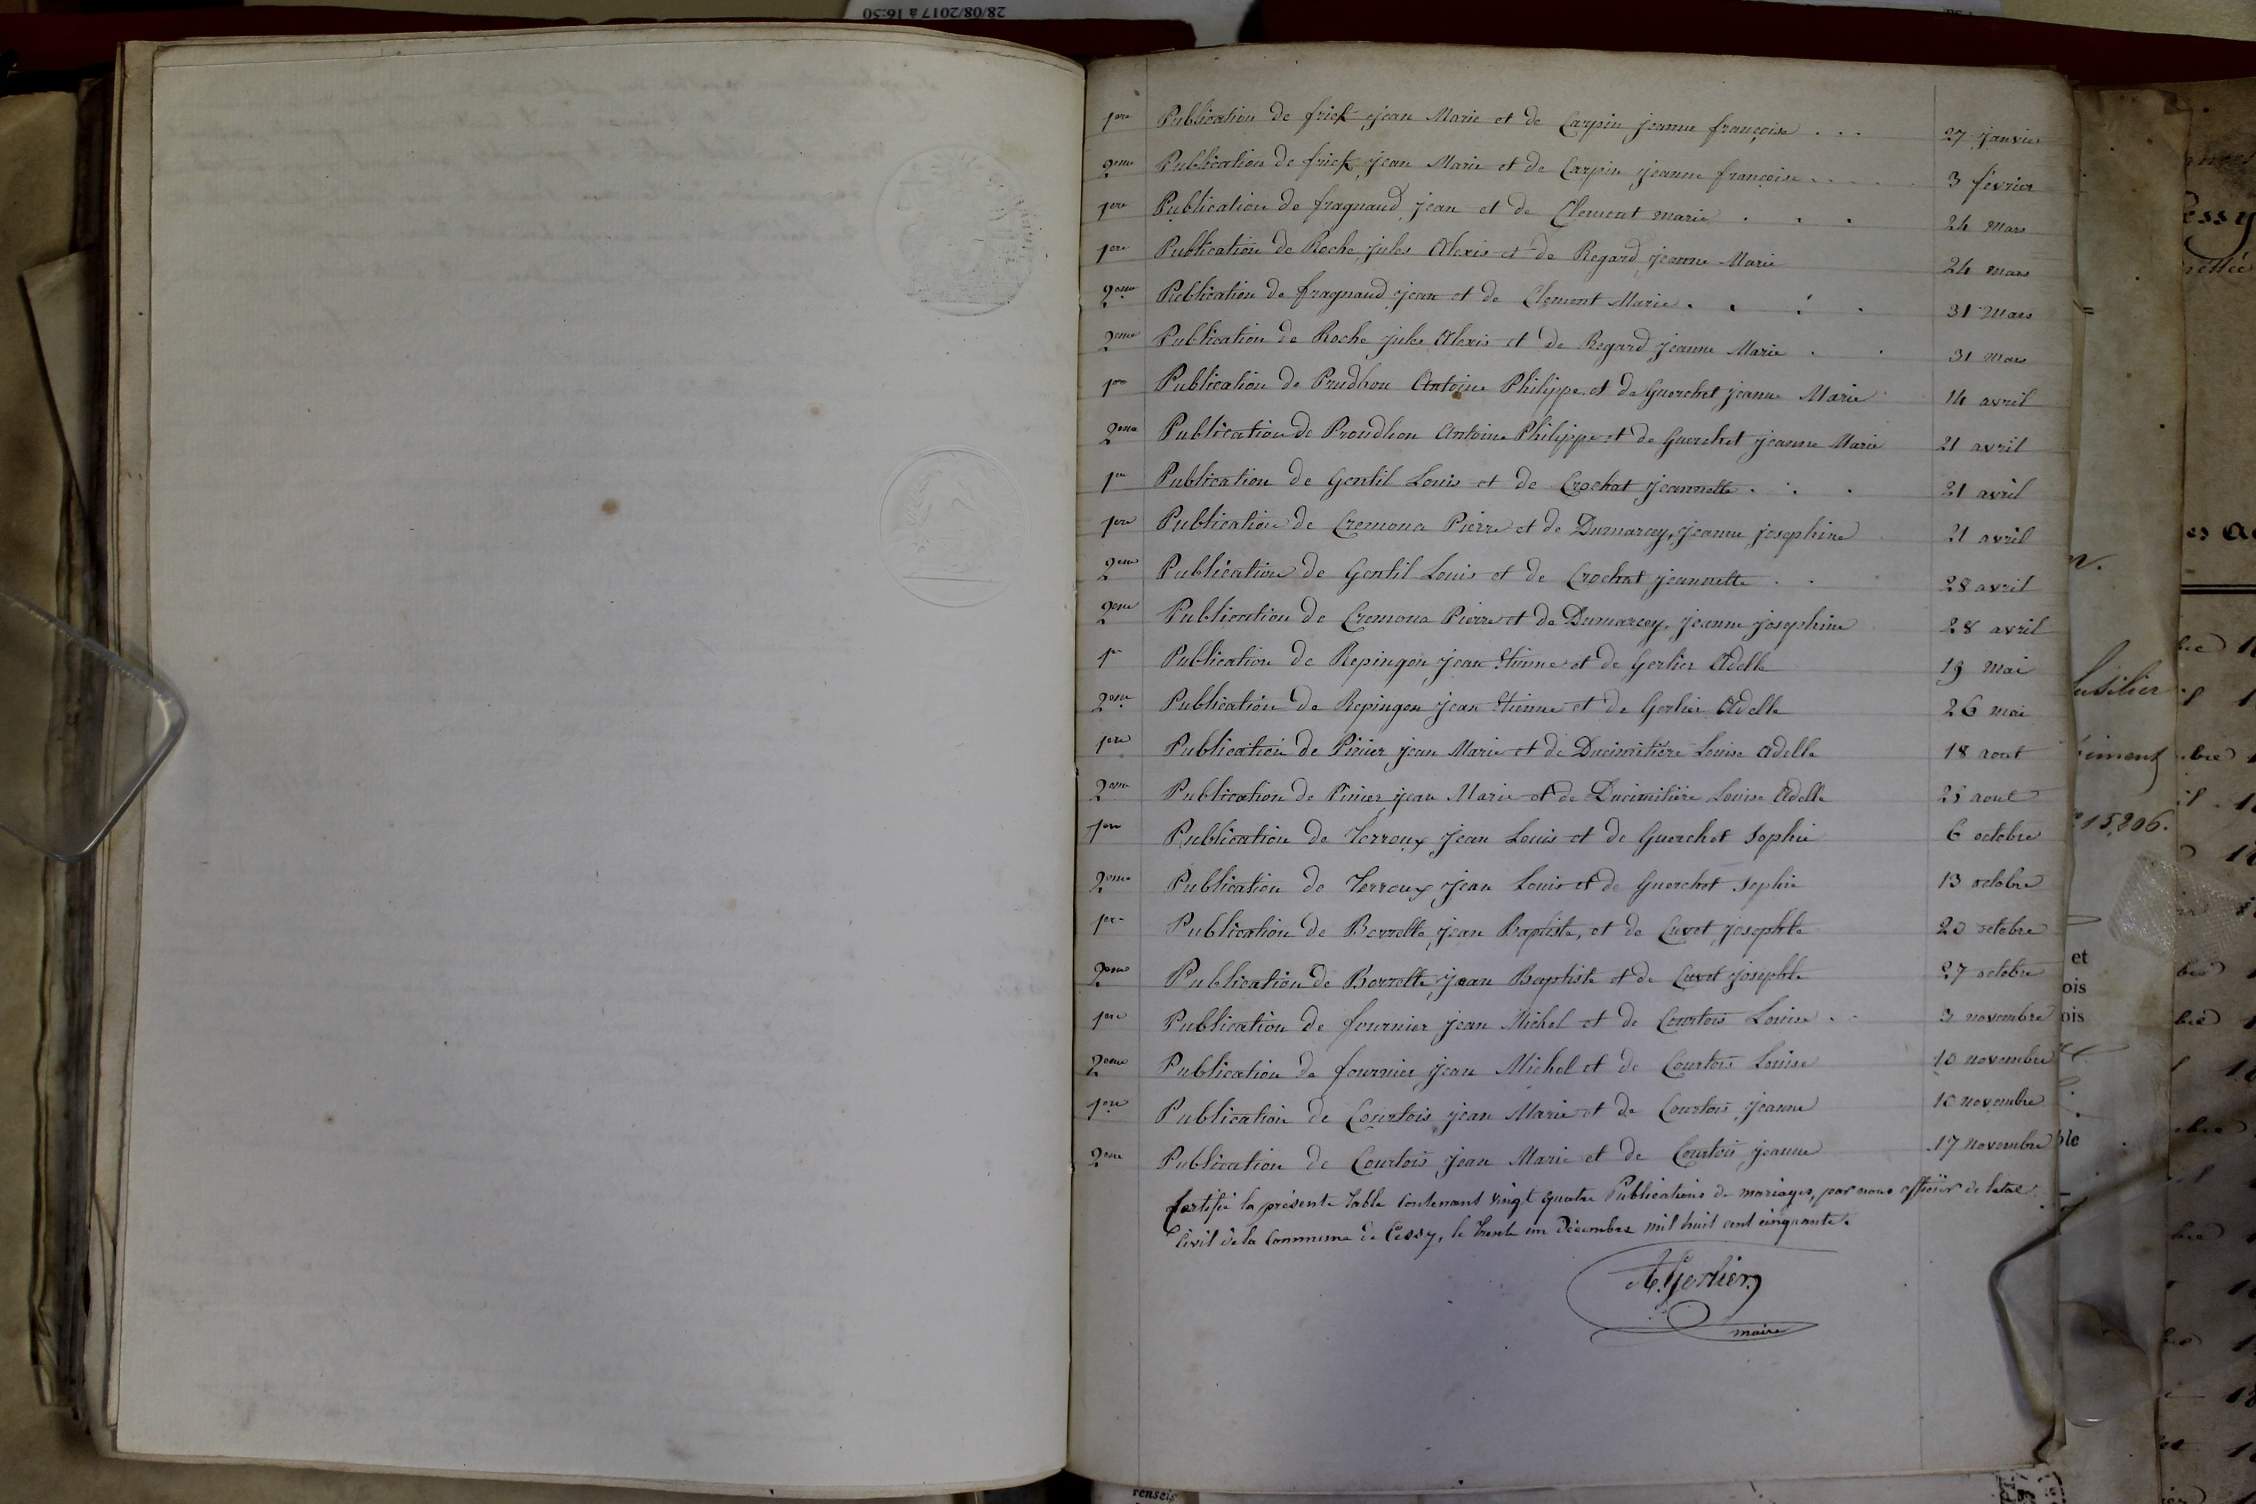 28/08/2017 à 16:50
1ere Publication de frick jean Marie et de Carpin jeanne françoise . . . 27 janvier
2eme Publication de frick jean Marie et de Carpin jeanne françoise . . . . 3 février
1ere Publication de fragnaud jean et de Clement marie . . . 24 Mars
1ere Publication de Roche jules Alexis et de Regard jeanne Marie 24 mars
2eme Publication de fragnaud jean et de Clement Marie . . . . 31 Mars
2eme Publication de Roche jules Alexis et de Regard jeanne Marie . . 31 Mars
1ere Publication de Prudhon Antoine Philippe et de Guerchet jeanne Marie 14 avril
2eme Publication de Proudhon Antoine Philippe et de Guerchet jeanne Marie 21 avril
1ere Publication de Gentil Louis et de Crochat jeannette . . . 21 avril
1ere Publication de Cremona Pierre et de Dumarcey, jeanne josephine 21 avril
2eme Publication de Gentil Louis et de Crochat jeannette . . 28 avril
2eme Publication de Cremona Pierre et de Dumarcey, jeanne josephine 28 avril
1re Publication de Repingon jean Etienne et de Gerlier Adelle 19 mai
2eme Publication de Repingon jean Etienne et de Gerlier Adelle 26 mai
1ere Publication de Pinier jean Marie et de Ducimitière Louise adelle 18 aout
2eme Publication de Pinier jean Marie et de Ducimitière Louise Adelle 25 aout
1ere Publication de Verroux jean Louis et de Guerchet Sophie 6 octobre
2eme Publication de Verroux jean Louis et de Guerchet Sophie 13 octobre
1ere Publication de Borrelte jean Baptiste, et de Cuvet josephte 20 octobre
2eme Publication de Borrelte jean Baptiste et de Cuvet josephte 27 octobre
1ere Publication de fournier jean Michel et de Courtois Louise . . 3 novembre
2eme Publication de fournier jean Michel et de Courtois Louise 10 novembre
1ere Publication de Courtois jean Marie et de Courtois jeanne 10 novembre
2eme Publication de Courtois jean Marie et de Courtois jeanne 17 novembre
Certifié la présente table contenant vingt quatre Publications de mariages, par nous officier de letat
Civil de la Commune de Cessy, le trente un Décembre mil huit cent cinquante.
A. Gerlier
maire
essy
n.
fusilier
iment
15,206.
et
ois
ois
ble
renseig